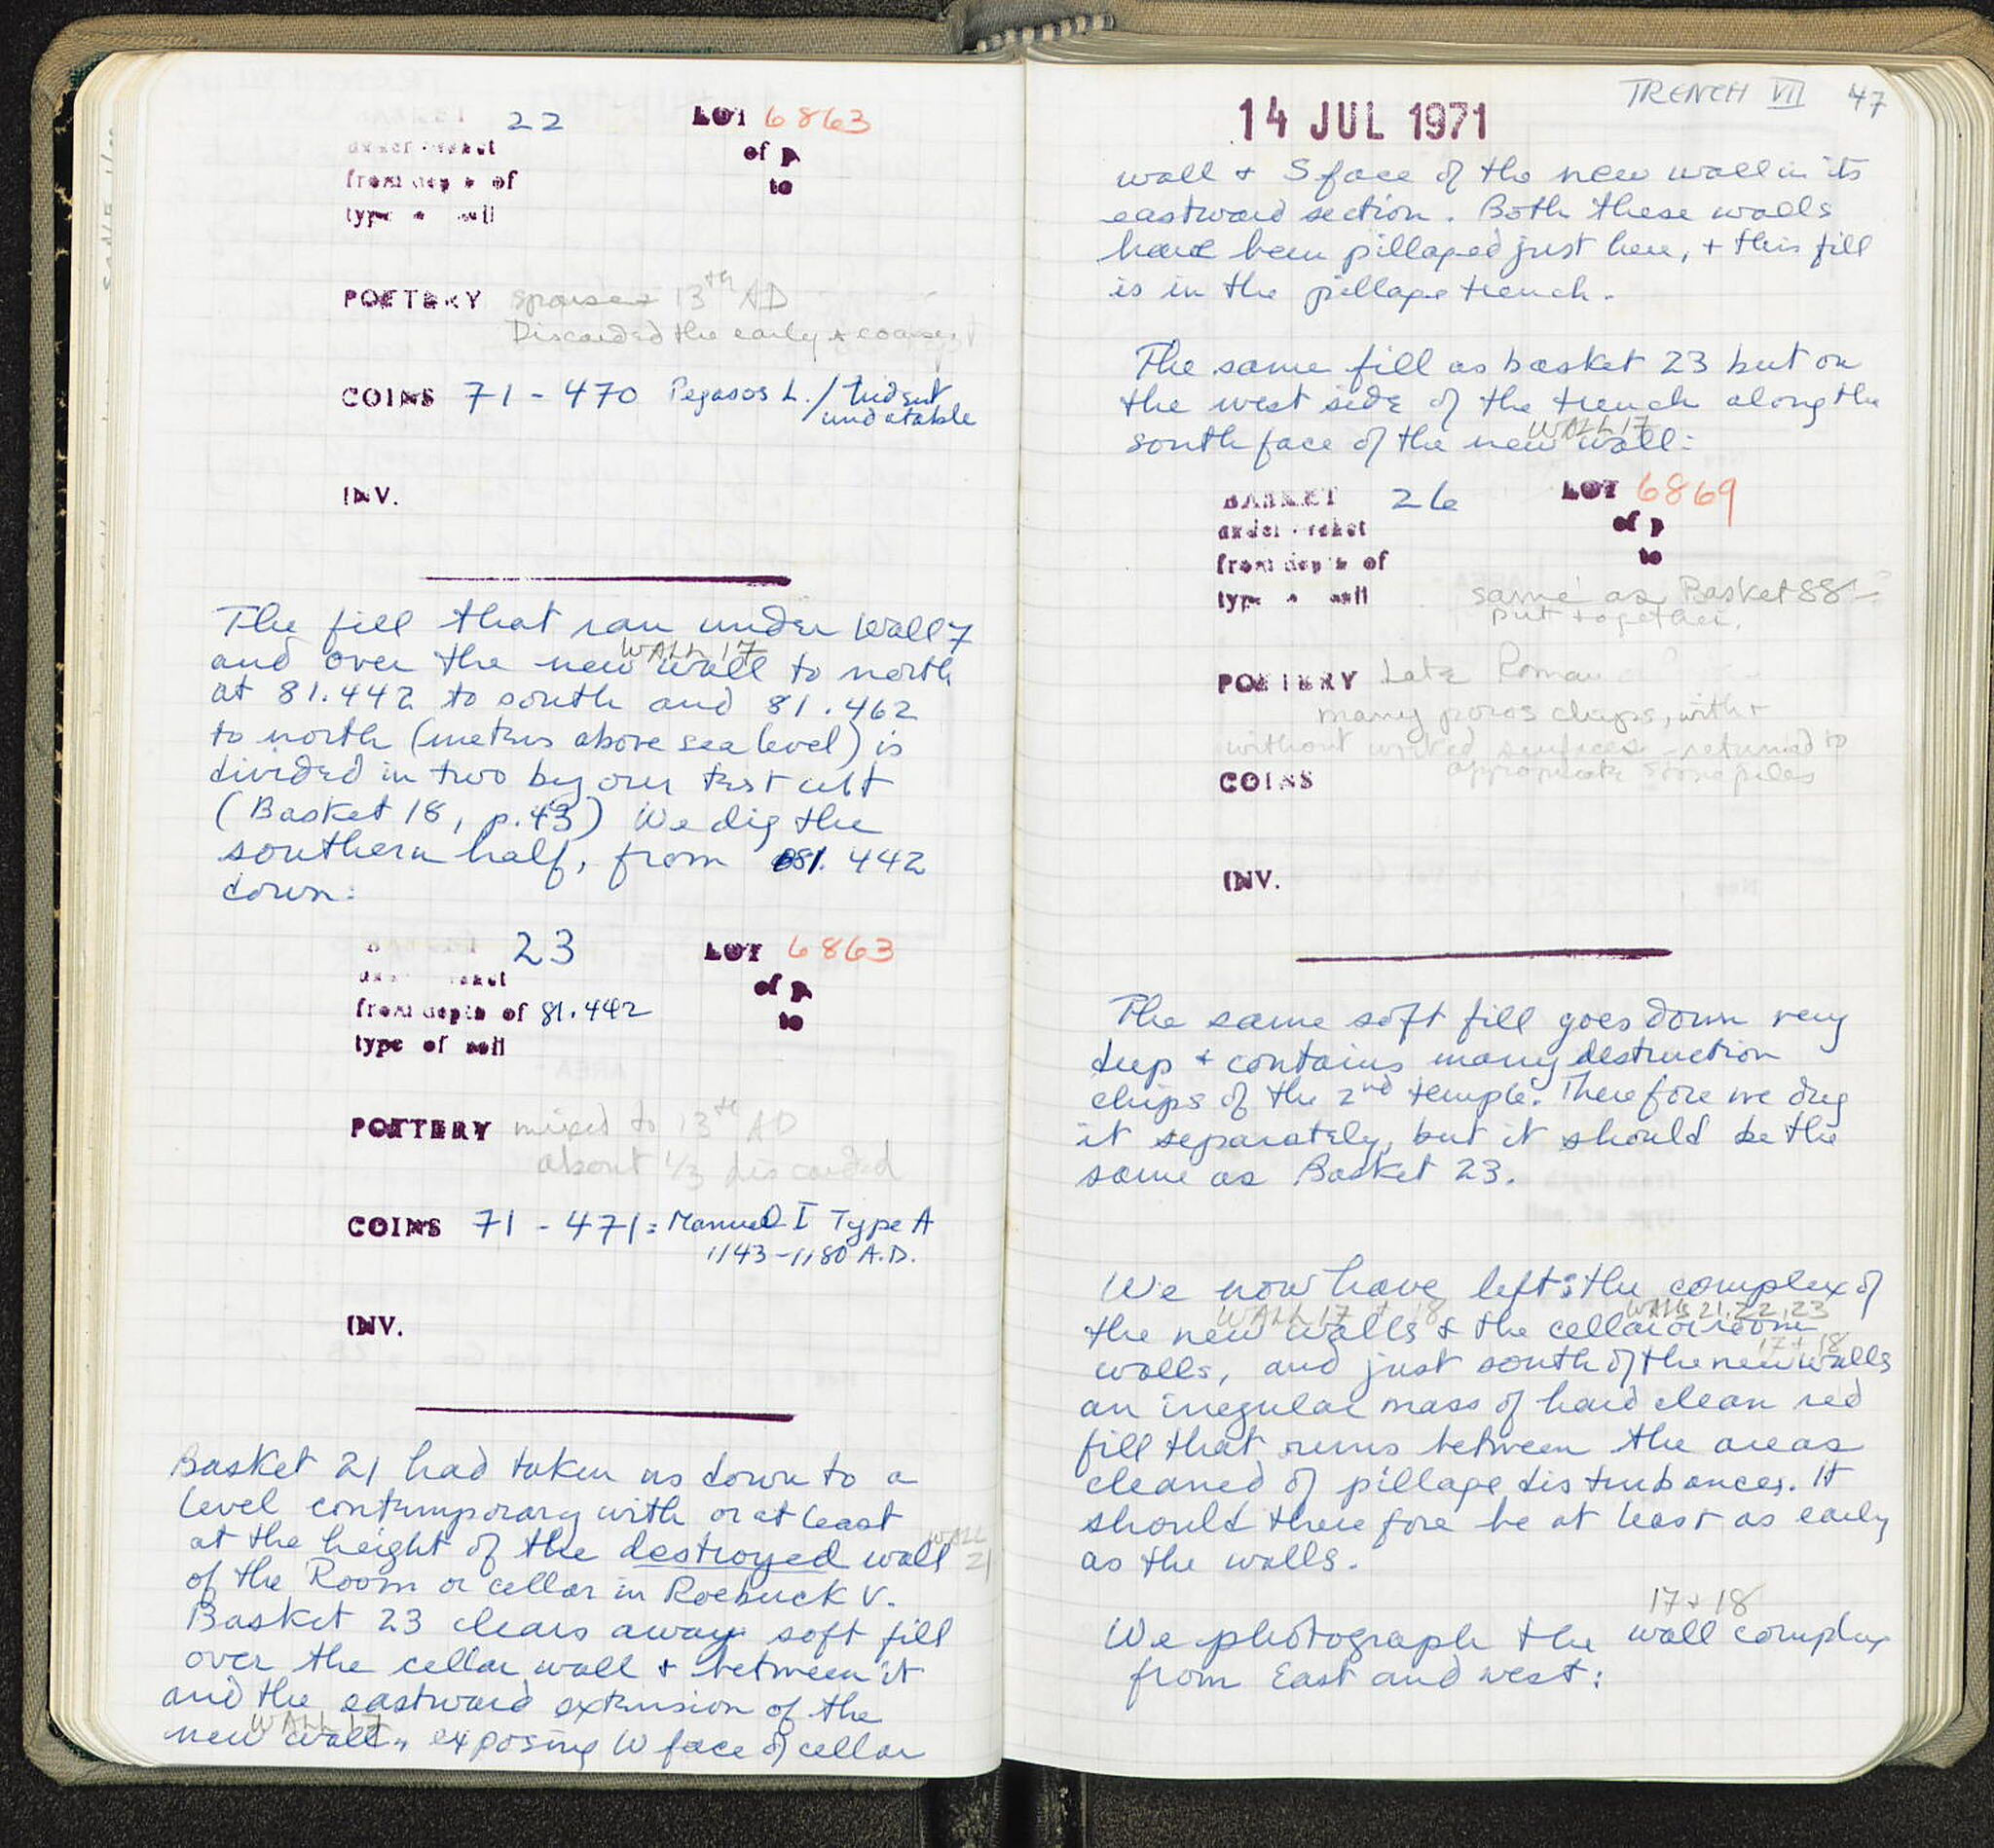 22 LOT 6863
under basket of p
from depth of to
type of soil
POTTERY sparse 13th AD
Discarded the early + coarse
COINS 71 - 470 Pegasos L. / trident
undatable
INV.
The fill that ran under Wall 7
WALL 17
and over the new wall to north
at 81.442 to south and 81.462
to north (metres above sea level) is
divided in two by our test cut
(Basket 18, p.43) We dig the
southern half, from 81.442
down:
23 LOT 6863
under basket of p
from depth of 81.442 to
type of soil
POTTERY mixed to 13th AD
about 1/3 discarded
COINS 71 - 471: Manuel I Type A
1143-1180 A.D.
INV.
Basket 21 had taken us down to a
level contemporary with or at least
at the height of the destroyed wall WALL 21
of the Room or cellar in Roebuck V.
Basket 23 clears away soft fill
over the cellar wall + between it
and the eastward extension of the
WALL 17
new wall, exposing W face of cellar
TRENCH VII 47
14 JUL 1971
wall + S face of the new wall in its
eastward section. Both these walls
have been pillaged just here, + this fill
is in the pillage trench.
The same fill as basket 23 but on
the west side of the trench along the
WALL 17
south face of the new wall:
BASKET 26 LOT 6869
under basket of p
from depth of to
type of soil same as Basket 88
put together.
POTTERY Late Roman
many poros chips, with +
without worked surfaces - returned to
appropriate stone piles
COINS
INV.
The same soft fill goes down very
deep + contains many destruction
chips of the 2nd temple. Therefore we dug
it separately, but it should be the
same as Basket 23.
We now have left: the complex of
WALL 17 + 18 WALLS 21, 22, 23
the new walls & the cellar or room
17 + 18
walls, and just south of the new walls
an irregular mass of hard clean red
fill that runs between the areas
cleaned of pillage disturbances. It
should therefore be at least as early
as the walls.
17 + 18
We photograph the wall complex
from East and west: